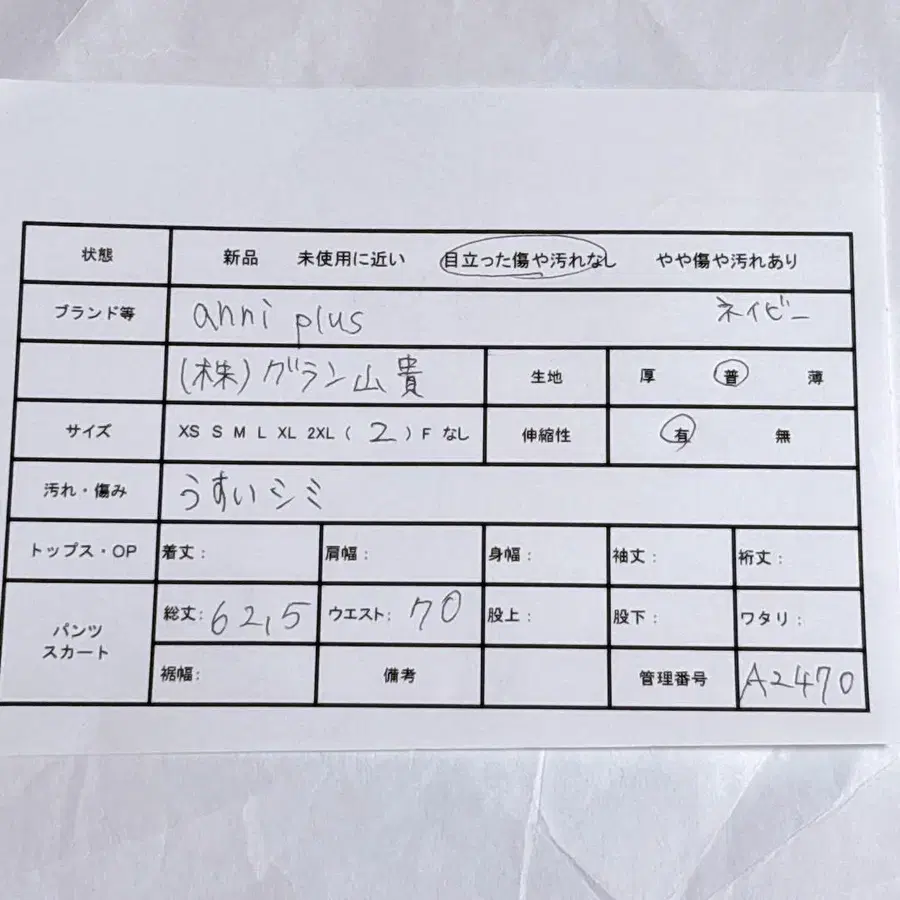 状態 新品 未使用に近い 目立った傷や汚れなし やや傷や汚れあり
ブランド等 anni plus ネイビー
(株)グラン山貴 生地 厚 普 薄
サイズ XS S M L XL 2XL ( 2 ) F なし 伸縮性 有 無
汚れ・傷み うすいシミ
トップス・OP 着丈: 肩幅: 身幅: 袖丈: 裄丈:
パンツ
スカート
総丈: 62,5 ウエスト: 70 股上: 股下: ワタリ:
裾幅: 備考 管理番号 A2470